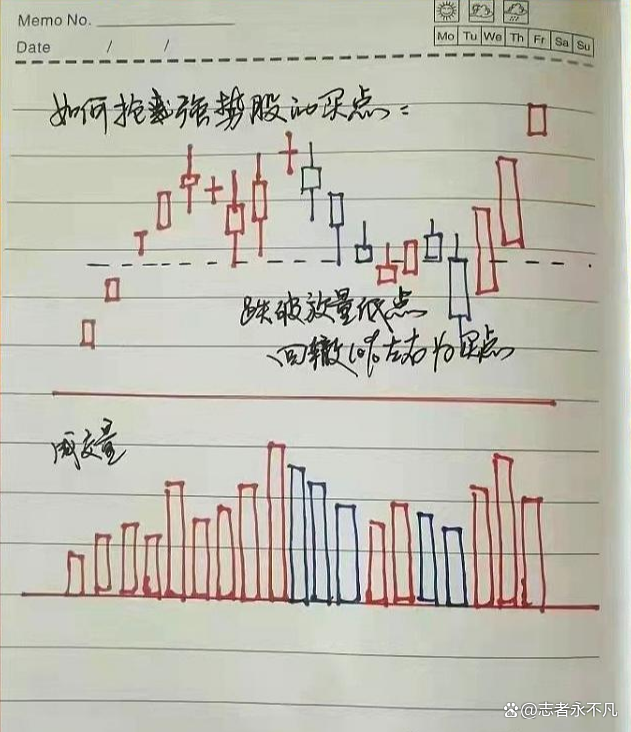 Memo No.
Mo Tu We Th Fr Sa Su
Date / /
如何抢到强势股的买点：
跌破放量低点
回撤10%左右为买点
成交量
@志者永不凡